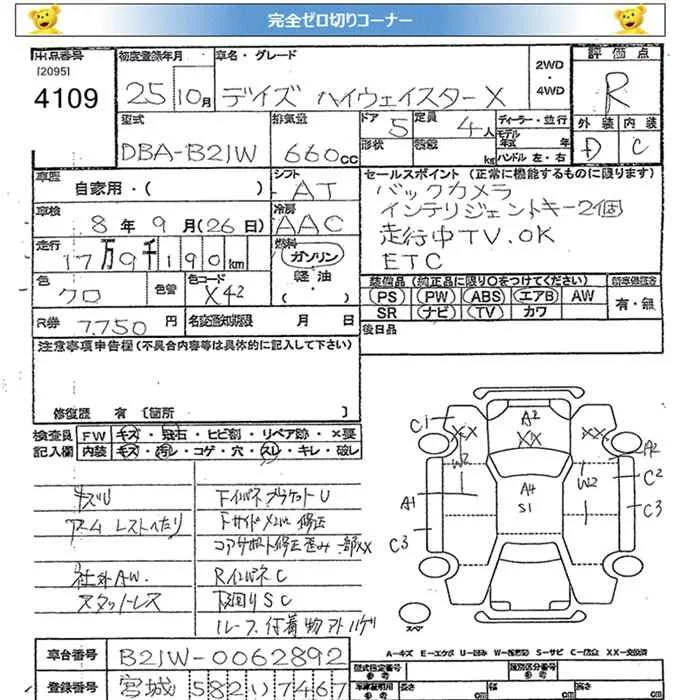 完全ゼロ切りコーナー
出品番号
[2095]
4109
初度登録年月
25 10月
車名・グレード
デイズ ハイウェイスターX
2WD
・
4WD
評価点
R
外装 内装
D C
型式
DBA-B21W
排気量
660cc
ドア 5
形状
定員 4人
積載 kg
ディーラー・並行
モデル年式 年
ハンドル 左・右
車歴
自家用・( )
シフト
AT
車検
8年9月(26日)
冷房
AAC
走行
17万9千190km
燃料
ガソリン
軽油
・( )
色
クロ
色替
色コード
X42
R券 7,750円
名変通知期限 月 日
セールスポイント (正常に機能するものに限ります)
バックカメラ
インテリジェントキー2個
走行中TV.OK
ETC
装備品(純正品に限り〇をつけてください)
PS PW ABS エアB AW
SR ナビ TV カワ
新車保証書
有・無
後日品
注意事項申告欄(不具合内容等は具体的に記入して下さい)
修復歴 有 [箇所 ]
検査員
記入欄
FW キズ・飛石・ヒビ割・リペア跡・×要
内装 キズ・汚レ・コゲ・穴・スレ・キレ・破レ
キズU
アームレストへたり
社外AW.
スタットレス
FインパネブラケットU
Fサイドメンバー修正
コアサポート修正歪み一部XX
RインパネC
下回りSC
ルーフ付着物アトハゲ
C1
A2
XX
XX
XX
A2
W2
W2
C2
A1
A4
S1
C3
C3
スペア
A-キズ E-エクボ U-凹み W-波形跡 S-サビ C-腐食 XX-交換済
車台番号 B21W-0062892
登録番号 宮城 582 い 7467
型式指定番号
参考
類別区分番号
参考
長さ cm
幅 cm
高さ cm